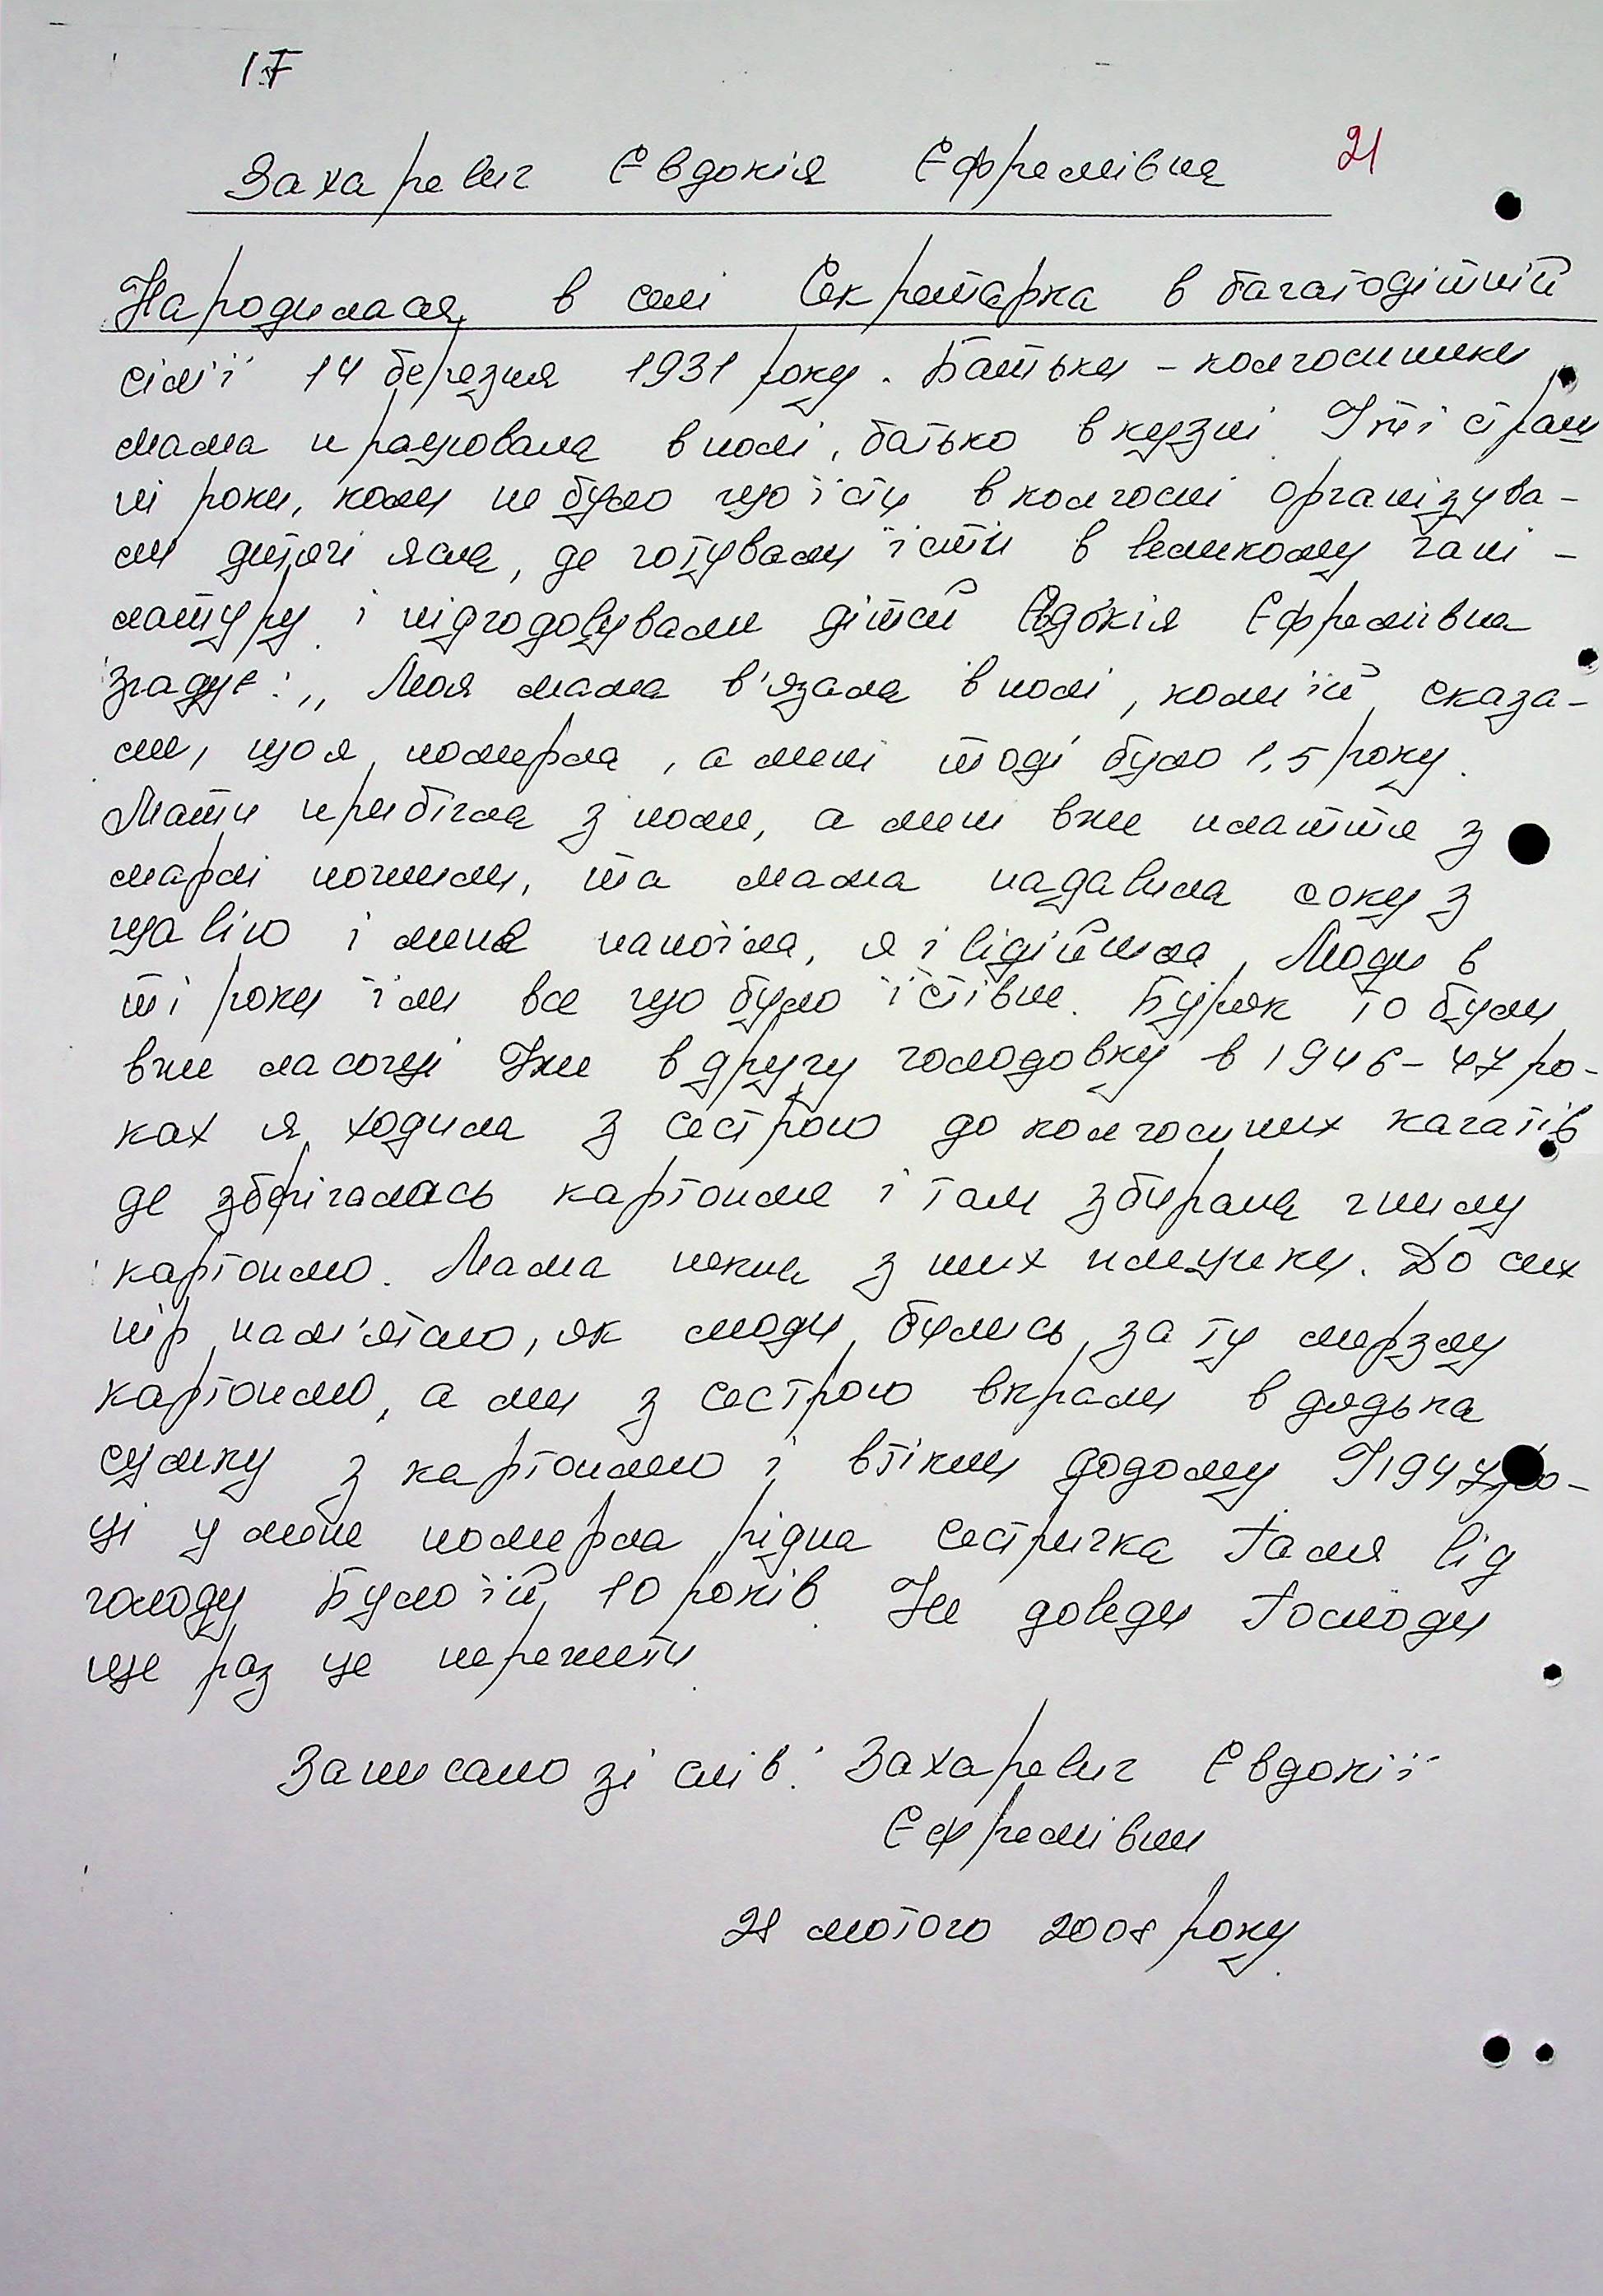 17
Захаревич Євдокія Єфремівна 21
Народилася в селі Секретарка в багатодітній
сім'ї 14 березня 1931 року. Батьки - колгоспники
мама працювала в полі, батько в кузні. У ті страш
ні роки, коли не було що їсти в колгоспі організува-
ли дитячі ясла, де готували їсти в великому чані -
латуру і підгодовували дітей Євдокія Єфремівна
згадує: „ Моя мама в'язала в полі, коли їй сказа-
ли, що я померла, а мені тоді було 1,5 року.
Мати прибігла з поля, а мені вже плаття з
марлі пошили, та мама надавила соку з
щавлю і мене напоїла, я і відійшла. Люди в
ті роки їли все що було їстівне. Буряк то були
вже ласощі Уже в другу голодовку в 1946-47 ро-
ках я ходила з сестрою до колгоспних кагатів
де зберігалась картопля і там збирала гнилу
картоплю. Мама пекла з них пляцики. До сих
пір пам'ятаю, як люди бились за ту мерзлу
картоплю, а ми з сестрою вкрали в дядька
сумку з картоплею і втікли додому У 1947 ро-
ці у мене померла рідна сестричка Галя від
голоду Було їй 10 років. Не доведи Господи
ще раз це пережити.
Записано зі слів: Захаревич Євдокії
Єфремівни
28 лютого 2008 року.